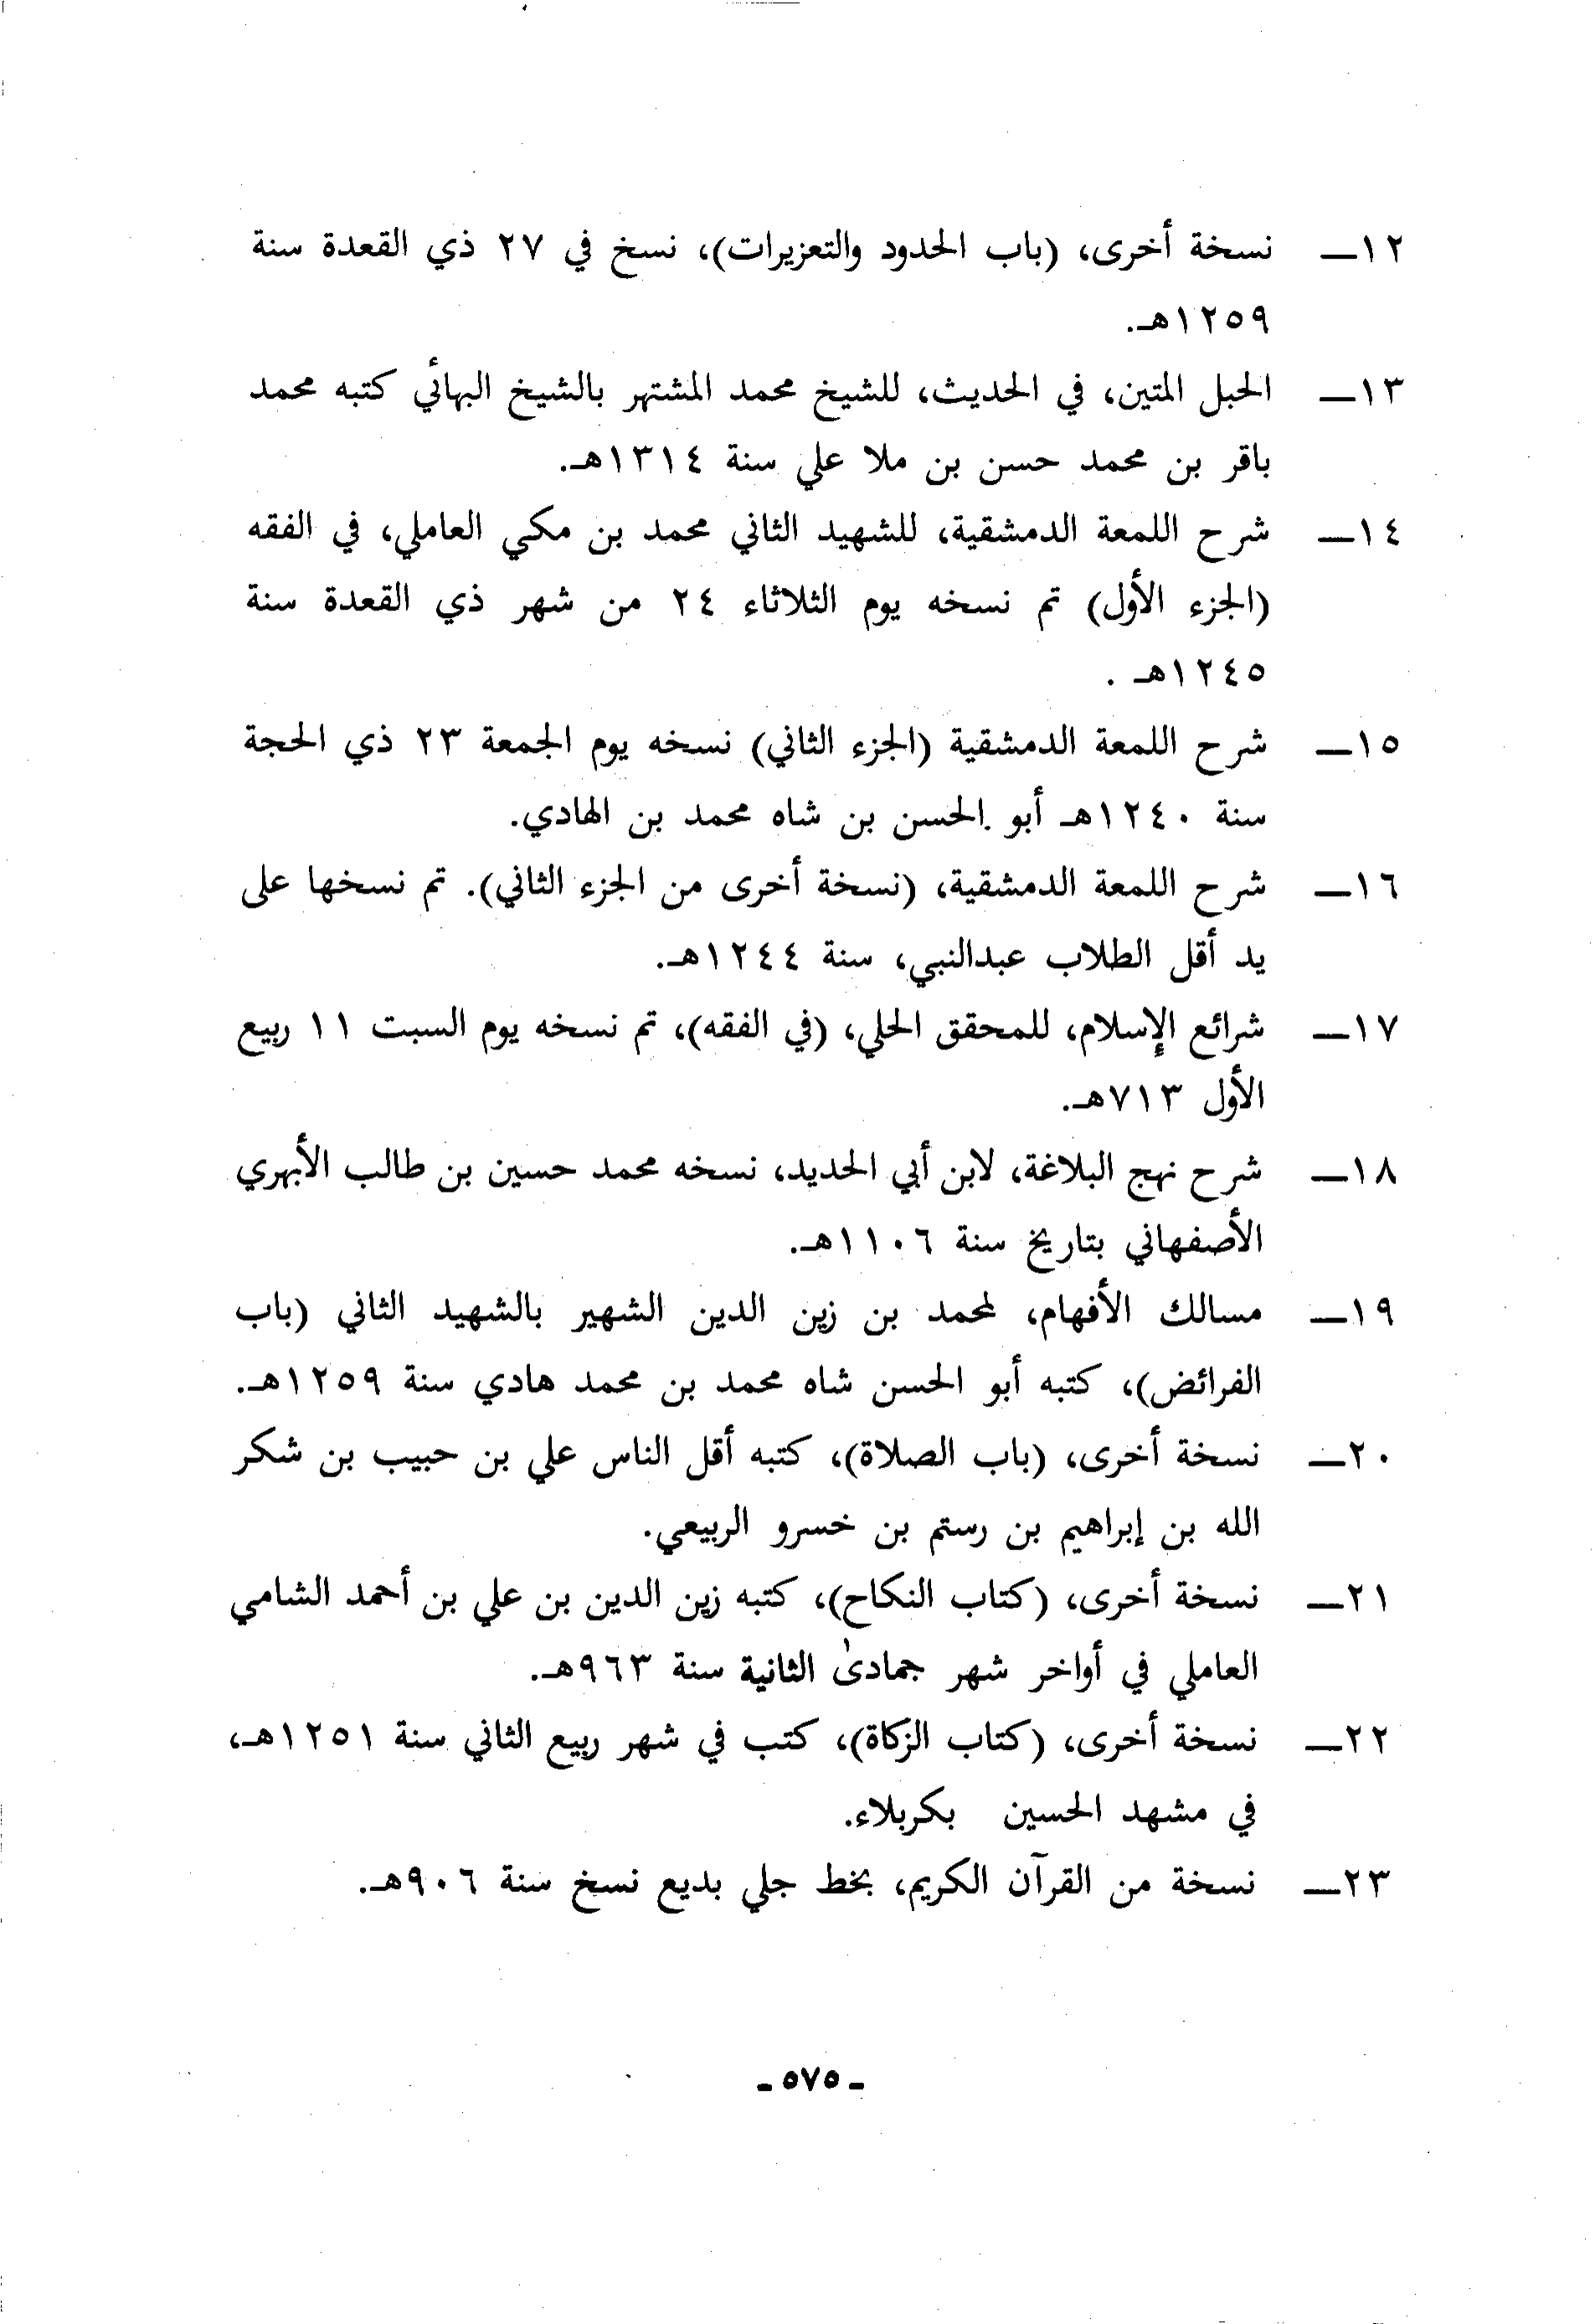 ١٢ـ نسخة أخرى، (باب الحدود والتعزيرات)، نسخ في ٢٧ ذي القعدة سنة
١٢٥٩هـ.
١٣ـ الحبل المتين، في الحديث، للشيخ محمد المشتهر بالشيخ البهائي كتبه محمد
باقر بن محمد حسن بن ملا علي سنة ١٣١٤هـ.
١٤ـ شرح اللمعة الدمشقية، للشهيد الثاني محمد بن مكي العاملي، في الفقه
(الجزء الأول) تم نسخه يوم الثلاثاء ٢٤ من شهر ذي القعدة سنة
١٢٤٥هـ .
١٥ـ شرح اللمعة الدمشقية (الجزء الثاني) نسخه يوم الجمعة ٢٣ ذي الحجة
سنة ١٢٤٠هـ أبو الحسن بن شاه محمد بن الهادي.
١٦ـ شرح اللمعة الدمشقية، (نسخة أخرى من الجزء الثاني). تم نسخها على
يد أقل الطلاب عبدالنبي، سنة ١٢٤٤هـ.
١٧ـ شرائع الإسلام، للمحقق الحلي، (في الفقه)، تم نسخه يوم السبت ١١ ربيع
الأول ٧١٣هـ.
١٨ـ شرح نهج البلاغة، لابن أبي الحديد، نسخه محمد حسين بن طالب الأبهري
الأصفهاني بتاريخ سنة ١١٠٦هـ.
١٩ـ مسالك الأفهام، لمحمد بن زين الدين الشهير بالشهيد الثاني (باب
الفرائض)، كتبه أبو الحسن شاه محمد بن محمد هادي سنة ١٢٥٩هـ.
٢٠ـ نسخة أخرى، (باب الصلاة)، كتبه أقل الناس علي بن حبيب بن شكر
الله بن إبراهيم بن رستم بن خسرو الربيعي.
٢١ـ نسخة أخرى، (كتاب النكاح)، كتبه زين الدين بن علي بن أحمد الشامي
العاملي في أواخر شهر جمادىٰ الثانية سنة ٩٦٣هـ.
٢٢ـ نسخة أخرى، (كتاب الزكاة)، كتب في شهر ربيع الثاني سنة ١٢٥١هـ،
في مشهد الحسين بكربلاء.
٢٣ـ نسخة من القرآن الكريم، بخط جلي بديع نسخ سنة ٩٠٦هـ.
ـ ٥٧٥ ـ